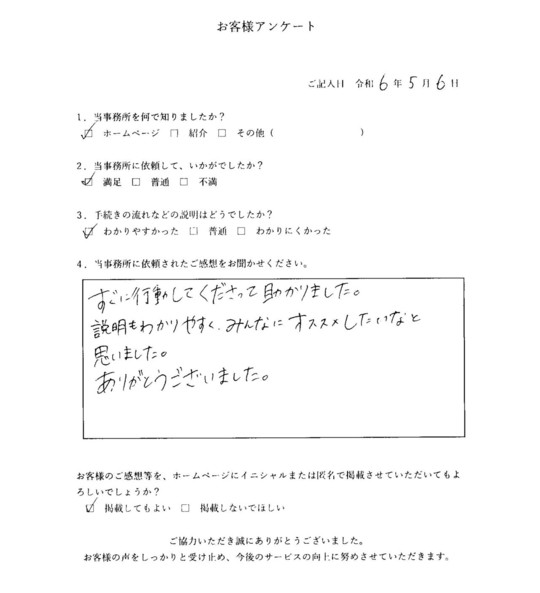 お客様アンケート
ご記入日 令和 6 年 5 月 6 日
1．当事務所を何で知りましたか？
☑ ホームページ □ 紹介 □ その他（ ）
2．当事務所に依頼して、いかがでしたか？
☑ 満足 □ 普通 □ 不満
3．手続きの流れなどの説明はどうでしたか？
☑ わかりやすかった □ 普通 □ わかりにくかった
4．当事務所に依頼されたご感想をお聞かせください。
すぐに行動してくださって助かりました。
説明もわかりやすく、みんなにオススメしたいなと
思いました。
ありがとうございました。
お客様のご感想等を、ホームページにイニシャルまたは匿名で掲載させていただいてもよ
ろしいでしょうか？
☑ 掲載してもよい □ 掲載しないでほしい
ご協力いただき誠にありがとうございました。
お客様の声をしっかりと受け止め、今後のサービスの向上に努めさせていただきます。